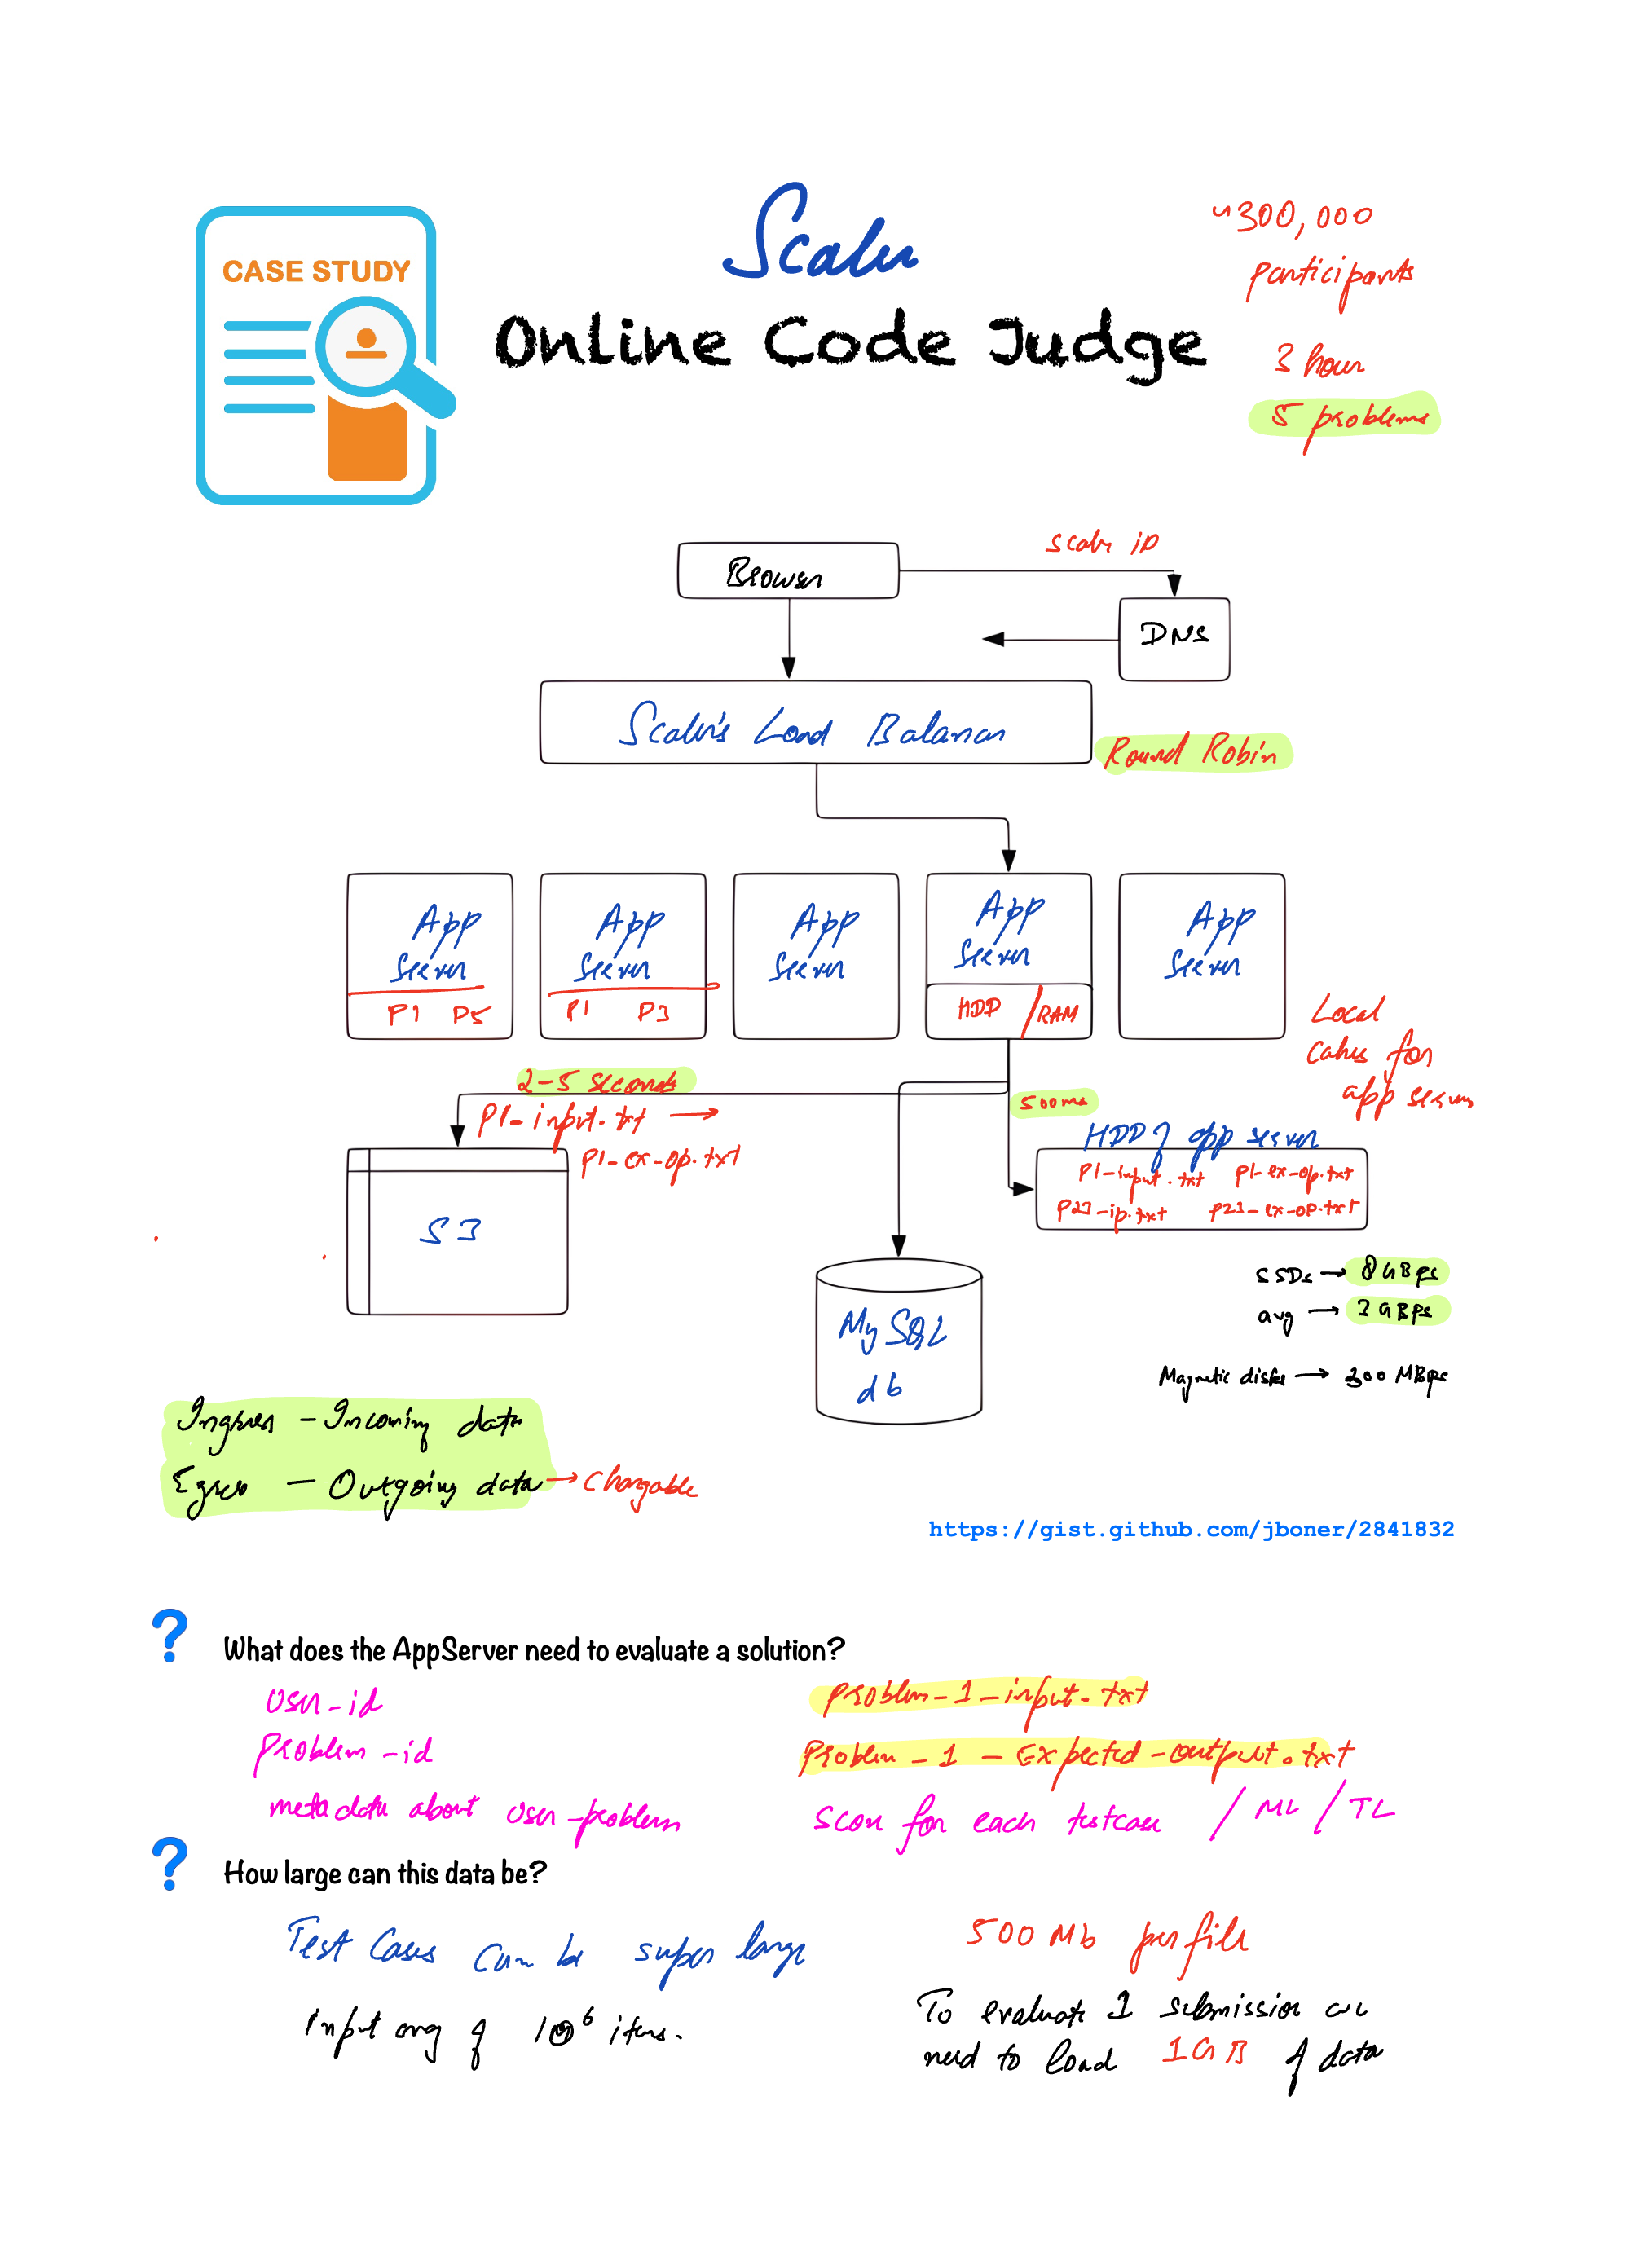 CASE STUDY
Scaler
Online Code Judge
~300,000
participants
3 hour
5 problems
scaler ip
Browser
DNS
Scaler's Load Balancer
Round Robin
App Server
App Server
App Server
App Server
App Server
P1 P5
P1 P3
HDD / RAM
Local
caches for
app servers
2-5 seconds
P1-input.txt →
P1-ex-op.txt
500ms
HDD of app server
P1-input.txt P1-ex-op.txt
P23-ip.txt P21-ex-op.txt
S3
MySQL
db
SSDs → 8 GBps
avg → 2 GBps
Magnetic disks → 300 MBps
Ingress - Incoming data
Egress - Outgoing data → Chargable
https://gist.github.com/jboner/2841832
? What does the AppServer need to evaluate a solution?
User-id
Problem-id
metadata about user-problem
Problem-1-input.txt
Problem-1-Expected-output.txt
score for each testcase / ML / TL
? How large can this data be?
Test Cases can be super large
input array of 10^6 items.
500 Mb per file
To evaluate 1 submission we
need to load 1GB of data